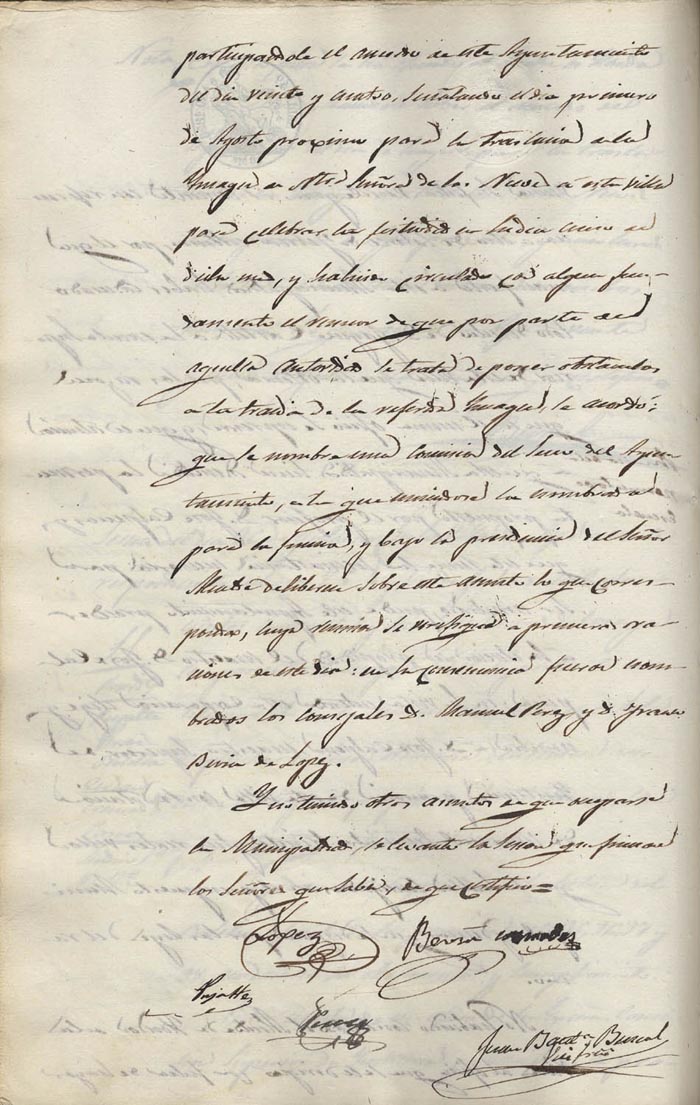 participandole el acuerdo de este Ayuntamiento
del dia veinte y cuatro, señalando el dia primero
de Agosto proximo para la traslacion de la
Imagen de Ntra Señora de las Nieves a esta villa
para celebrar la festividad en su dia cinco de
dicho mes, y habiendo circulado con algun fun-
damento el rumor de que por parte de
aquella autoridad se trata de poner obstaculos
a la traida de la referida Imagen, se acordó:
que se nombre una Comision del Seno del Ayun-
tamiento, a la que uniendose la nombrada
para la funcion, y bajo la presidencia del Señor
Alcalde delibere sobre este asunto lo que corres-
ponda, cuya reunion se verifique a primeras ora-
ciones de este dia: en su consecuencia fueron nom-
brados los Consejales D. Manuel Perez y D. Franco
de Lopez.
Y no teniendo otros asuntos de que ocuparse
la Municipalidad, se levantó la Sesion que firman
los Señores que saben, de que certifico=
Lopez
Perez
Juan Bauta
Srio